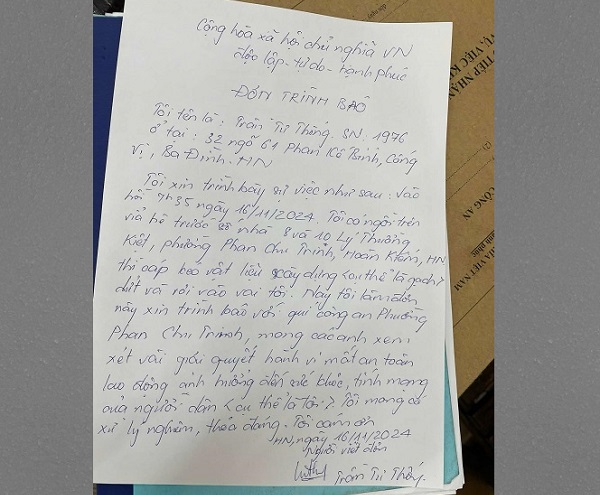 Cộng hòa xã hội chủ nghĩa VN
độc lập - tự do - hạnh phúc
ĐƠN TRÌNH BÁO
Tôi tên là : Trần Tư Thông. SN : 1976
ở tại : 32 ngõ 61 Phan Kế Bính, Cống
vị, Ba Đình - HN
Tôi xin trình bày sự việc như sau : vào
hồi 9h35 ngày 16/11/2024. Tôi có ngồi trên
vỉa hè trước số nhà 8 và 10 Lý Thường
Kiệt, phường Phan Chu Trinh, Hoàn Kiếm, HN
thì cáp kéo vật liệu xây dựng <cụ thể là gạch>
đứt và rơi vào vai tôi. Nay tôi làm đơn
này xin trình báo với quí công an Phường
Phan Chu Trinh, mong các anh xem
xét và giải quyết hành vi mất an toàn
lao động ảnh hưởng đến sức khỏe, tính mạng
của người dân <cụ thể là tôi>. Tôi mong có
xử lý nghiêm, thỏa đáng. Tôi cảm ơn
HN, ngày 16/11/2024
Người viết đơn
Trần Tư
TIẾP NHẬN
VỤ, VIỆC
CÔNG AN
VIỆT NAM